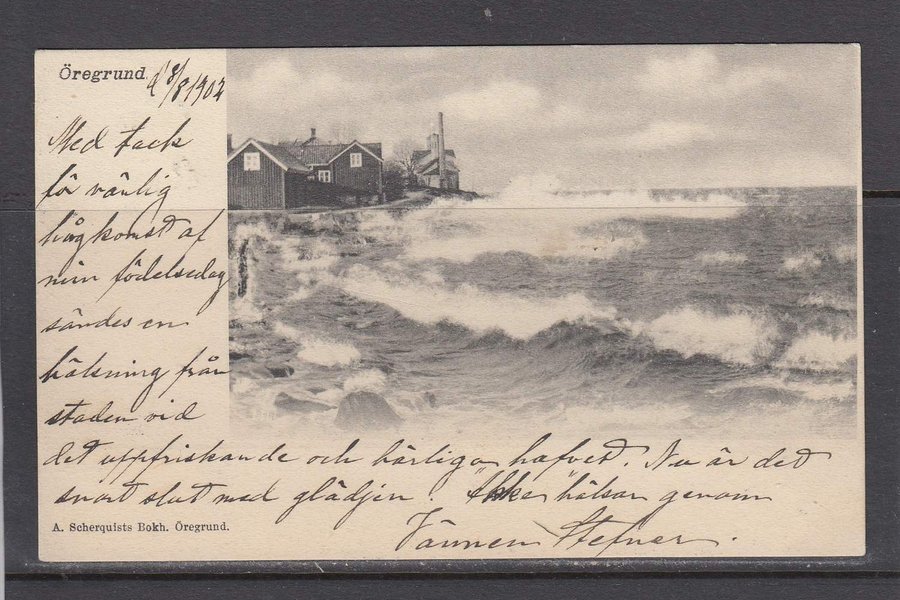 Öregrund. d 8/8 1902
Med tack
för vänlig
hågkomst af
min födelsedag
sändes en
hälsning från
staden vid
det uppfriskande och härliga hafvet. Nu är det
snart slut med glädjen. hälsar genom
A. Scherquists Bokh. Öregrund.
Vännen